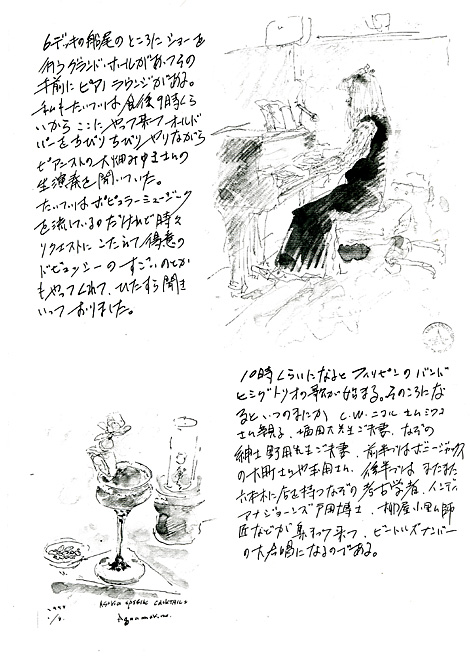 6デッキの船尾のところにショーを
行うグランド・ホールがあってその
手前にピアノラウンジがある。
私もたいていは食後9時くら
いから ここに やって来て オールド
パーをちびりちびりやりながら
ピアニストの大畑みゆきさんの
生演奏を聞いていた。
たいていはポピュラーミュージック
を流しているのだけれど時々
リクエストにこたえて得意の
ドビュッシーのすごいのとか
もやってくれて、ひたすら聞き
いって おりました。
10時くらいになると フィリピンのバンド
ヒミグトリオの歌が始まる。そのころにな
るといつのまにか C.W.ニコル
さん親子、福田先生ご夫妻、なぞの
紳士野田先生ご夫妻、前半ではボニージャックス
の大町さんや玉田さん、後半では またまた
六本木に店を持つなぞの考古学者、インディ
アナジョーンズ戸田博士、柳家小里ん師
匠などが集まって来て、ビートルズナンバー
の大合唱になるのである。
ASUKA SPECIAL COCKTAILS